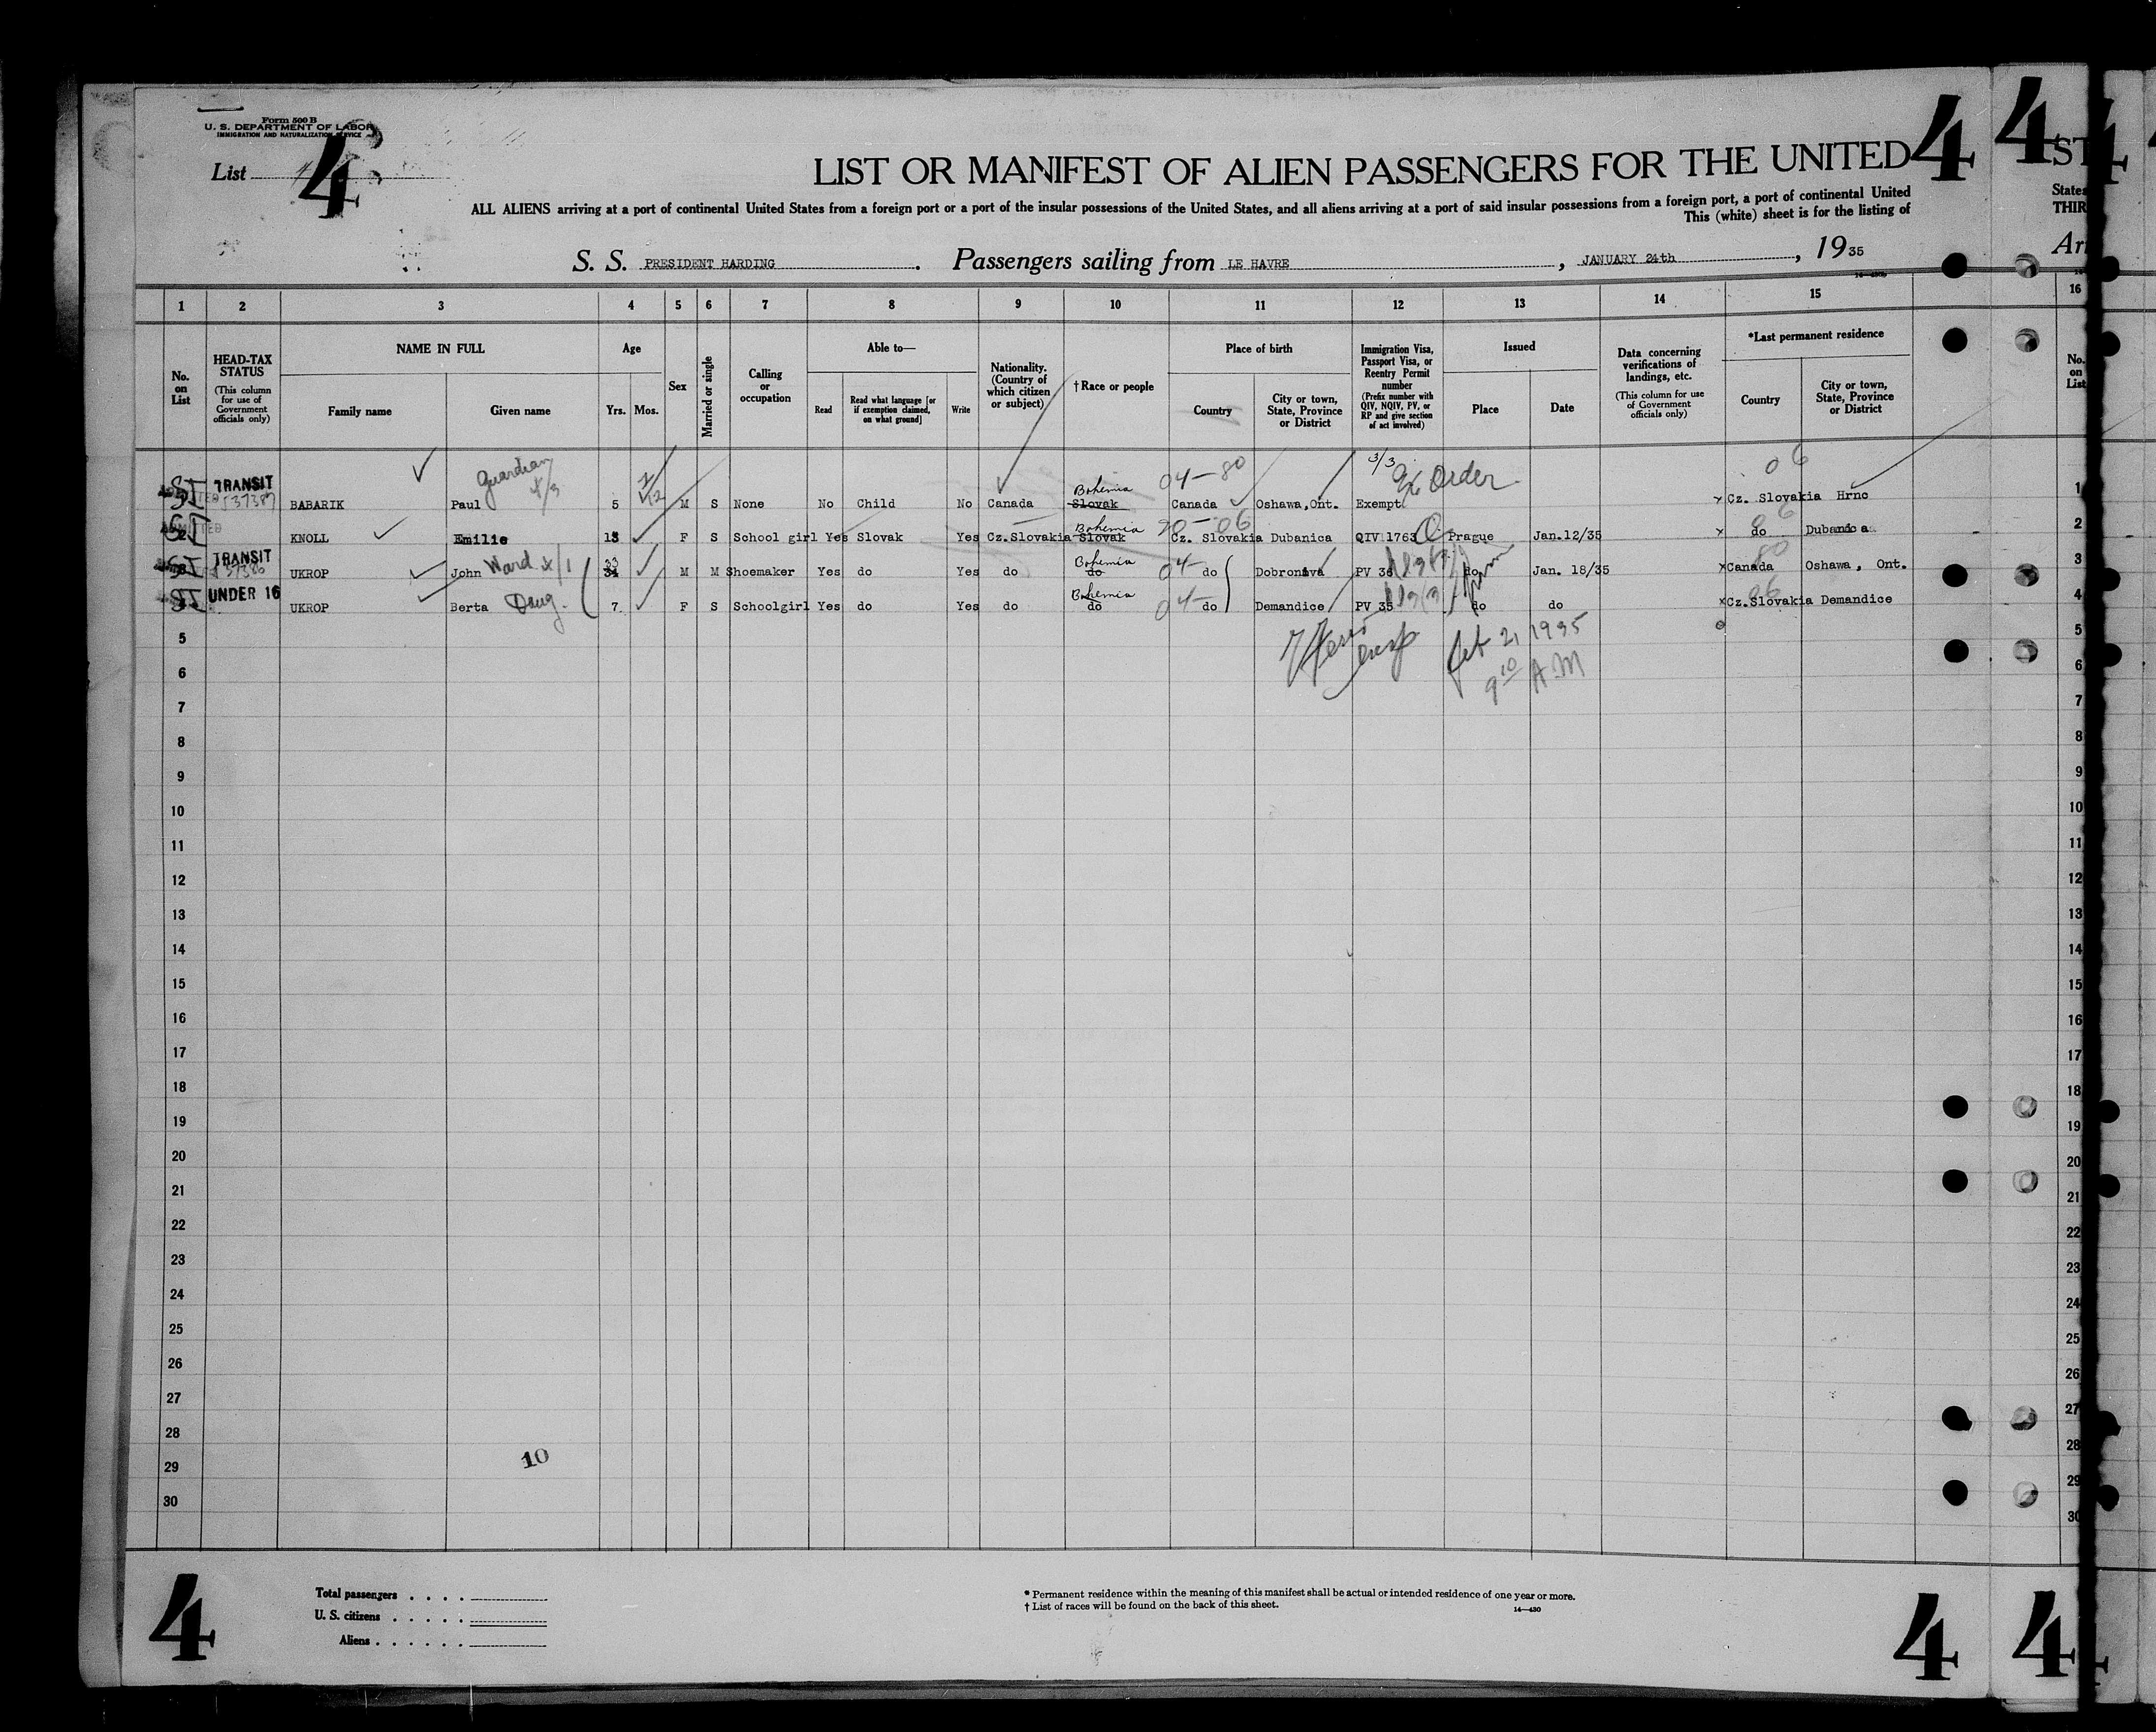 Form 500 B
U. S. DEPARTMENT OF LABOR
IMMIGRATION AND NATURALIZATION SERVICE
List 4
4 4 ST 4
LIST OR MANIFEST OF ALIEN PASSENGERS FOR THE UNITED
ALL ALIENS arriving at a port of continental United States from a foreign port or a port of the insular possessions of the United States, and all aliens arriving at a port of said insular possessions from a foreign port, a port of continental United
States
This (white) sheet is for the listing of
THIR
S. S. PRESIDENT HARDING. Passengers sailing from LE HAVRE, JANUARY 24th, 1935
Arr
1 2 3 4 5 6 7 8 9 10 11 12 13 14 15 16
No. on List
HEAD-TAX STATUS
(This column for use of Government officials only)
NAME IN FULL
Family name Given name
Age
Yrs. Mos.
Sex
Married or single
Calling or occupation
Able to—
Read
Read what language [or if exemption claimed, on what ground]
Write
Nationality. (Country of which citizen or subject)
†Race or people
Place of birth
Country
City or town, State, Province or District
Immigration Visa, Passport Visa, or Reentry Permit number
(Prefix number with QIV, NQIV, PV, or RP and give section of act involved)
Issued
Place Date
Data concerning verifications of landings, etc.
(This column for use of Government officials only)
*Last permanent residence
Country
City or town, State, Province or District
No. on List
Guardian 4/3 3/3 Ex Order 06
SI TRANSIT 537387 Bohemia 04-80
BABARIK Paul 5 M S None No Child No Canada Slovak Canada Oshawa,Ont. Exempt x Cz. Slovakia Hrnc 1
SI ADMITTED Bohemia 90-06 06
KNOLL Emilie 13 F S School girl Yes Slovak Yes Cz.Slovakia Slovak Cz. Slovakia Dubanica QIV 1763 Prague Jan.12/35 x do Dubanica 2
SI TRANSIT Ward 33 Bohemia 04- 80
UKROP John 34 M M Shoemaker Yes do Yes do do do Dobroniva PV 36 do Jan. 18/35 xCanada Oshawa, Ont. 3
SI UNDER 16 Daug. Bohemia 04- 06
UKROP Berta 7 F S Schoolgirl Yes do Yes do do do Demandice PV 35 do do xCz.Slovakia Demandice 4
5 insp Feb 21 1935 5
6 9 10 A.M 6
7 7
8 8
9 9
10 10
11 11
12 12
13 13
14 14
15 15
16 16
17 17
18 18
19 19
20 20
21 21
22 22
23 23
24 24
25 25
26 26
27 27
28 28
10
29 29
30 30
Total passengers . . . .
U. S. citizens . . . . .
Aliens . . . . . .
* Permanent residence within the meaning of this manifest shall be actual or intended residence of one year or more.
† List of races will be found on the back of this sheet.
14—430
4 4 4